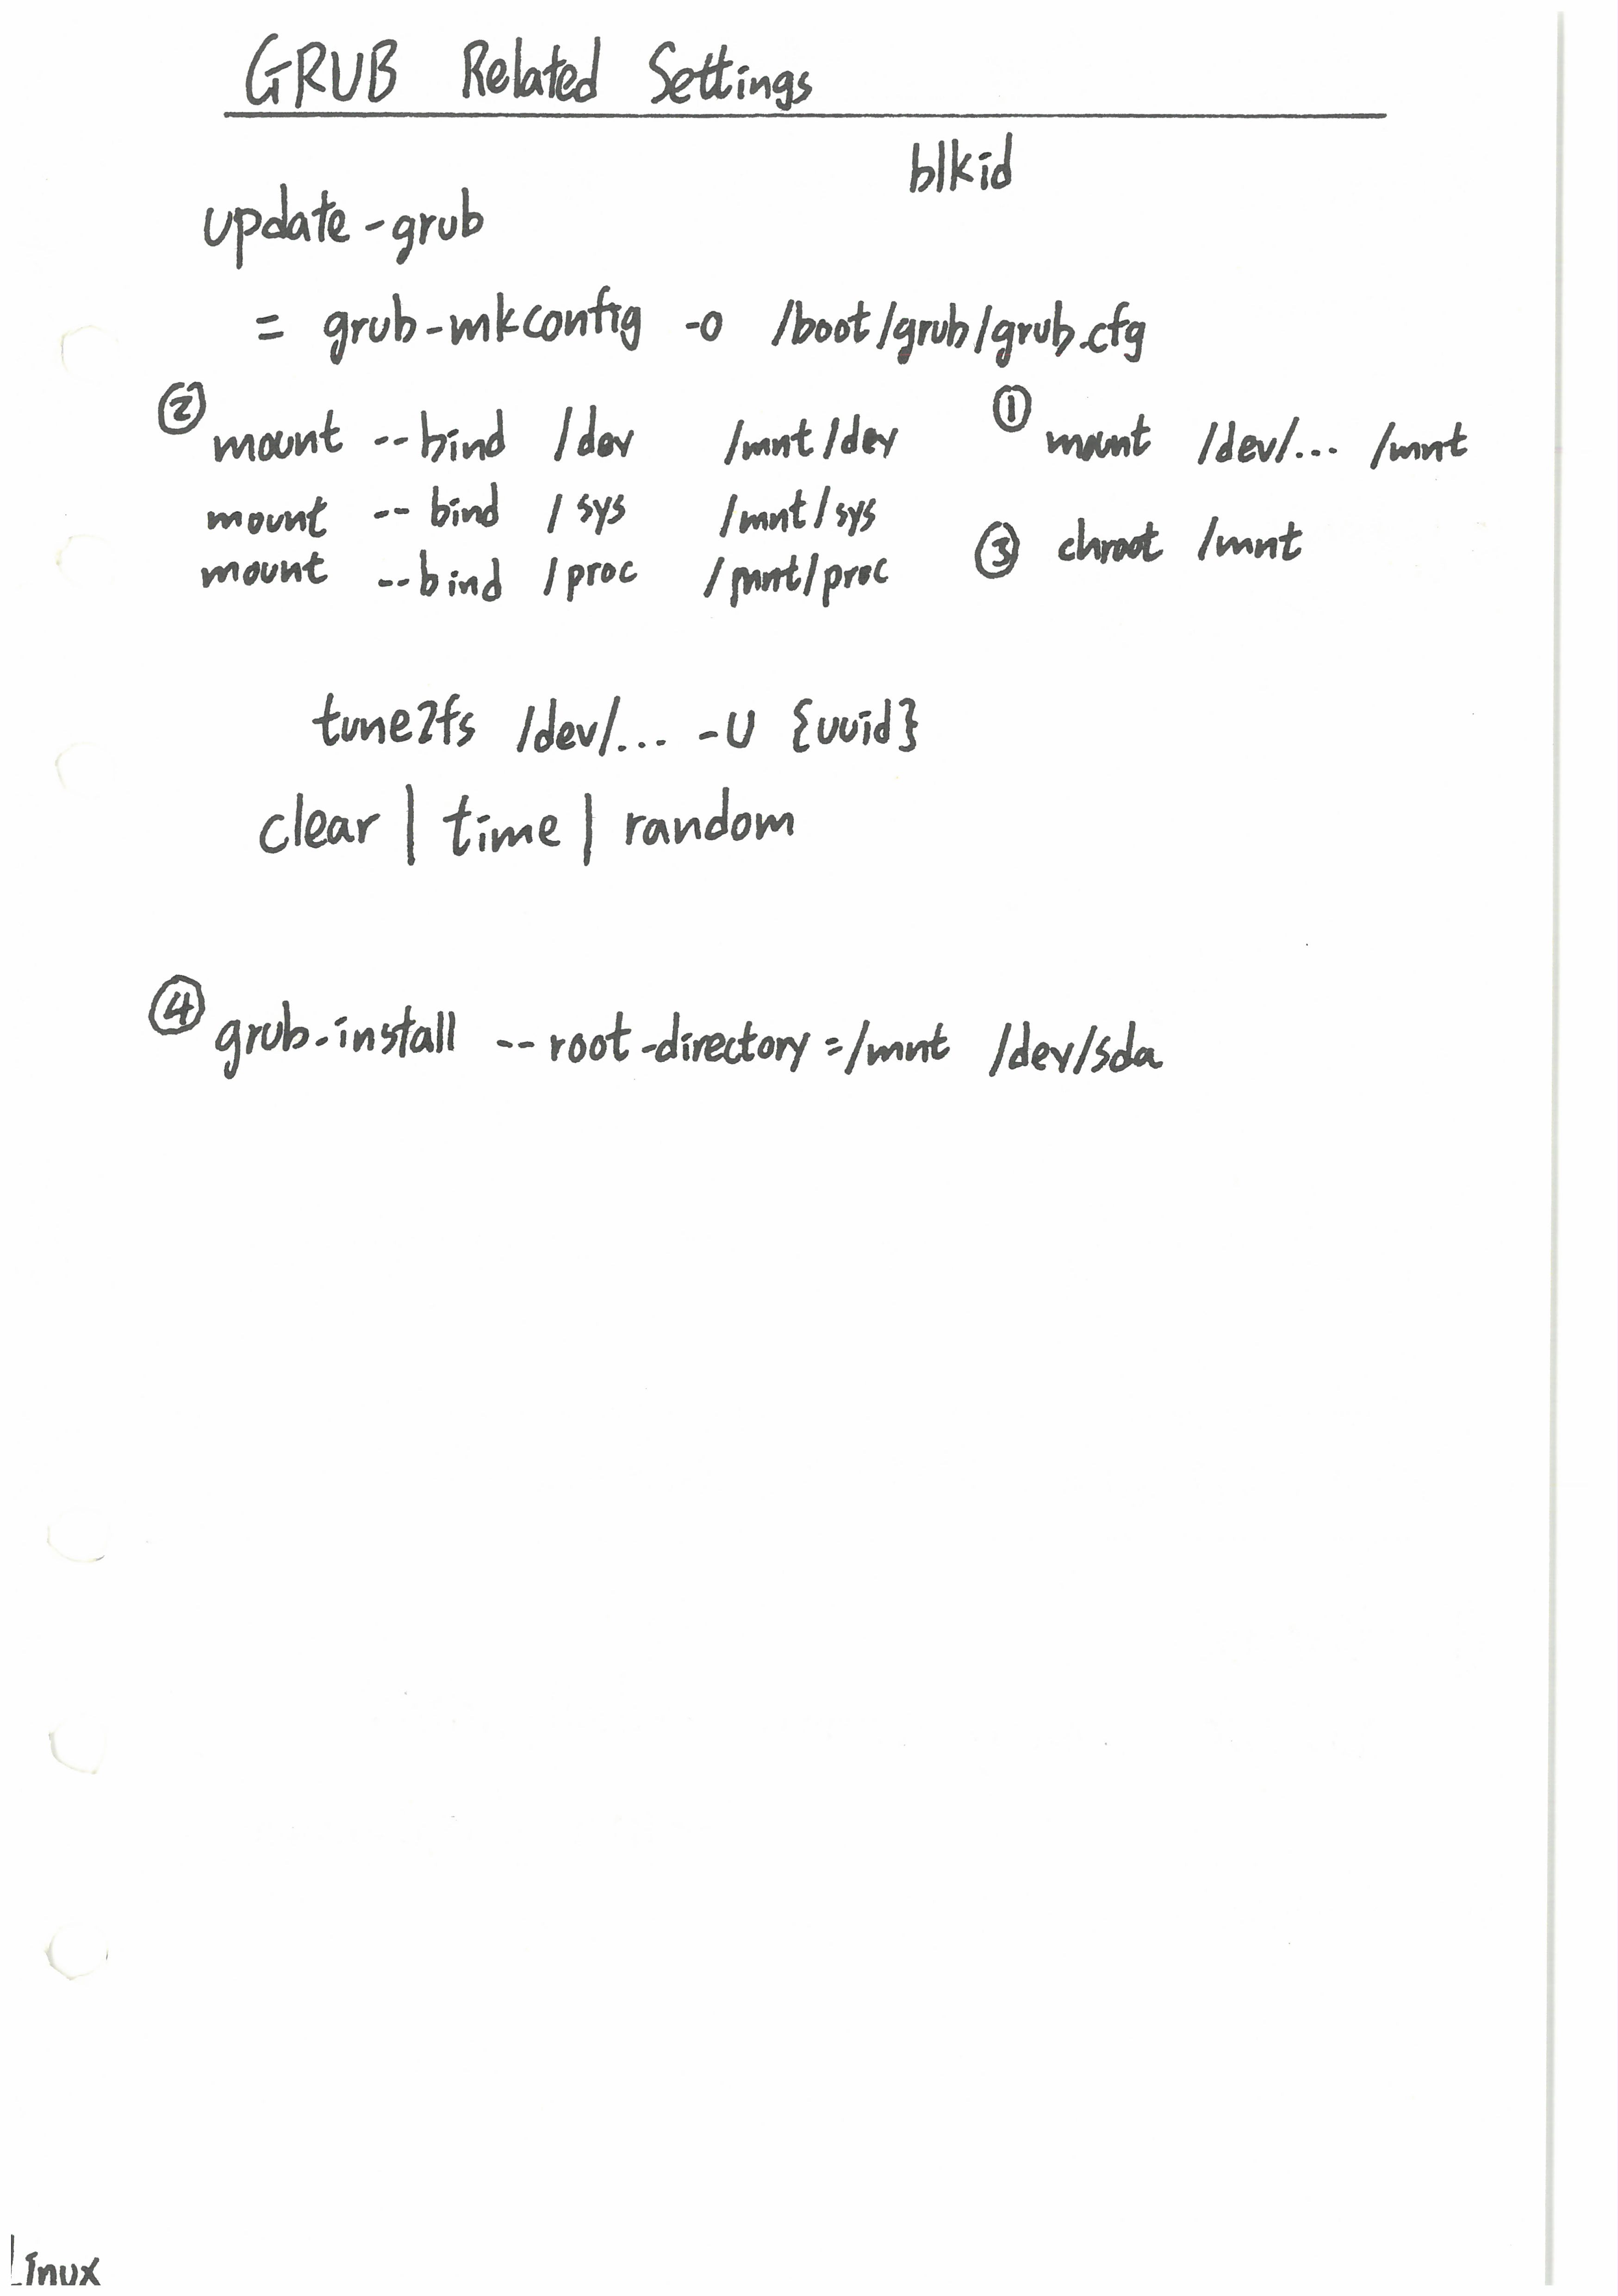 GRUB Related Settings
blkid
update-grub
= grub-mkconfig -o /boot/grub/grub.cfg
② mount --bind /dev /mnt/dev
① mount /dev/... /mnt
mount --bind /sys /mnt/sys
③ chroot /mnt
mount --bind /proc /mnt/proc
tune2fs /dev/... -U {uuid}
clear | time | random
④ grub-install --root-directory=/mnt /dev/sda
Linux